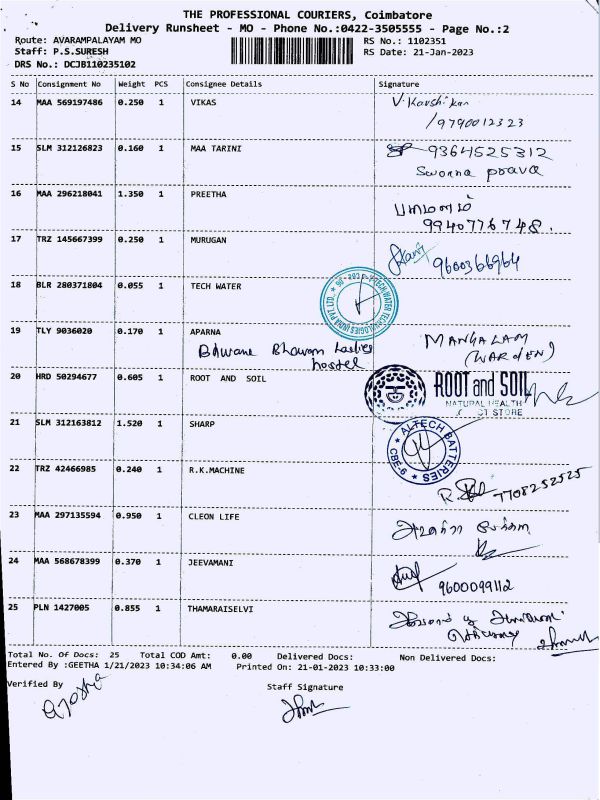 THE PROFESSIONAL COURIERS, Coimbatore
Delivery Runsheet - MO - Phone No.:0422-3505555 - Page No.:2
Route: AVARAMPALAYAM MO
RS No.: 1102351
Staff: P.S.SURESH
RS Date: 21-Jan-2023
DRS No.: DCJB110235102
S No Consignment No Weight PCS Consignee Details Signature
14 MAA 569197486 0.250 1 VIKAS
V. Kaushikan
/9790012323
15 SLM 312126823 0.160 1 MAA TARINI 9364525312
Sworna prava
16 MAA 296218041 1.350 1 PREETHA
9940776748.
17 TRZ 145667399 0.250 1 MURUGAN
9600366964
18 BLR 280371804 0.055 1 TECH WATER
19 TLY 9036020 0.170 1 APARNA MANGALAM
Bhawan Ladies (WARDEN)
hostel
20 HRD 50294677 0.605 1 ROOT AND SOIL ROOT and SOIL
NATURAL HEALTH
STORE
21 SLM 312163812 1.520 1 SHARP
ALTECH BATTERIES
CBE-6
22 TRZ 42466985 0.240 1 R.K.MACHINE
7708252525
23 MAA 297135594 0.950 1 CLEON LIFE
24 MAA 568678399 0.370 1 JEEVAMANI
9600099112
25 PLN 1427005 0.855 1 THAMARAISELVI
Total No. Of Docs: 25 Total COD Amt: 0.00 Delivered Docs: Non Delivered Docs:
Entered By :GEETHA 1/21/2023 10:34:06 AM Printed On: 21-01-2023 10:33:00
Verified By
Staff Signature